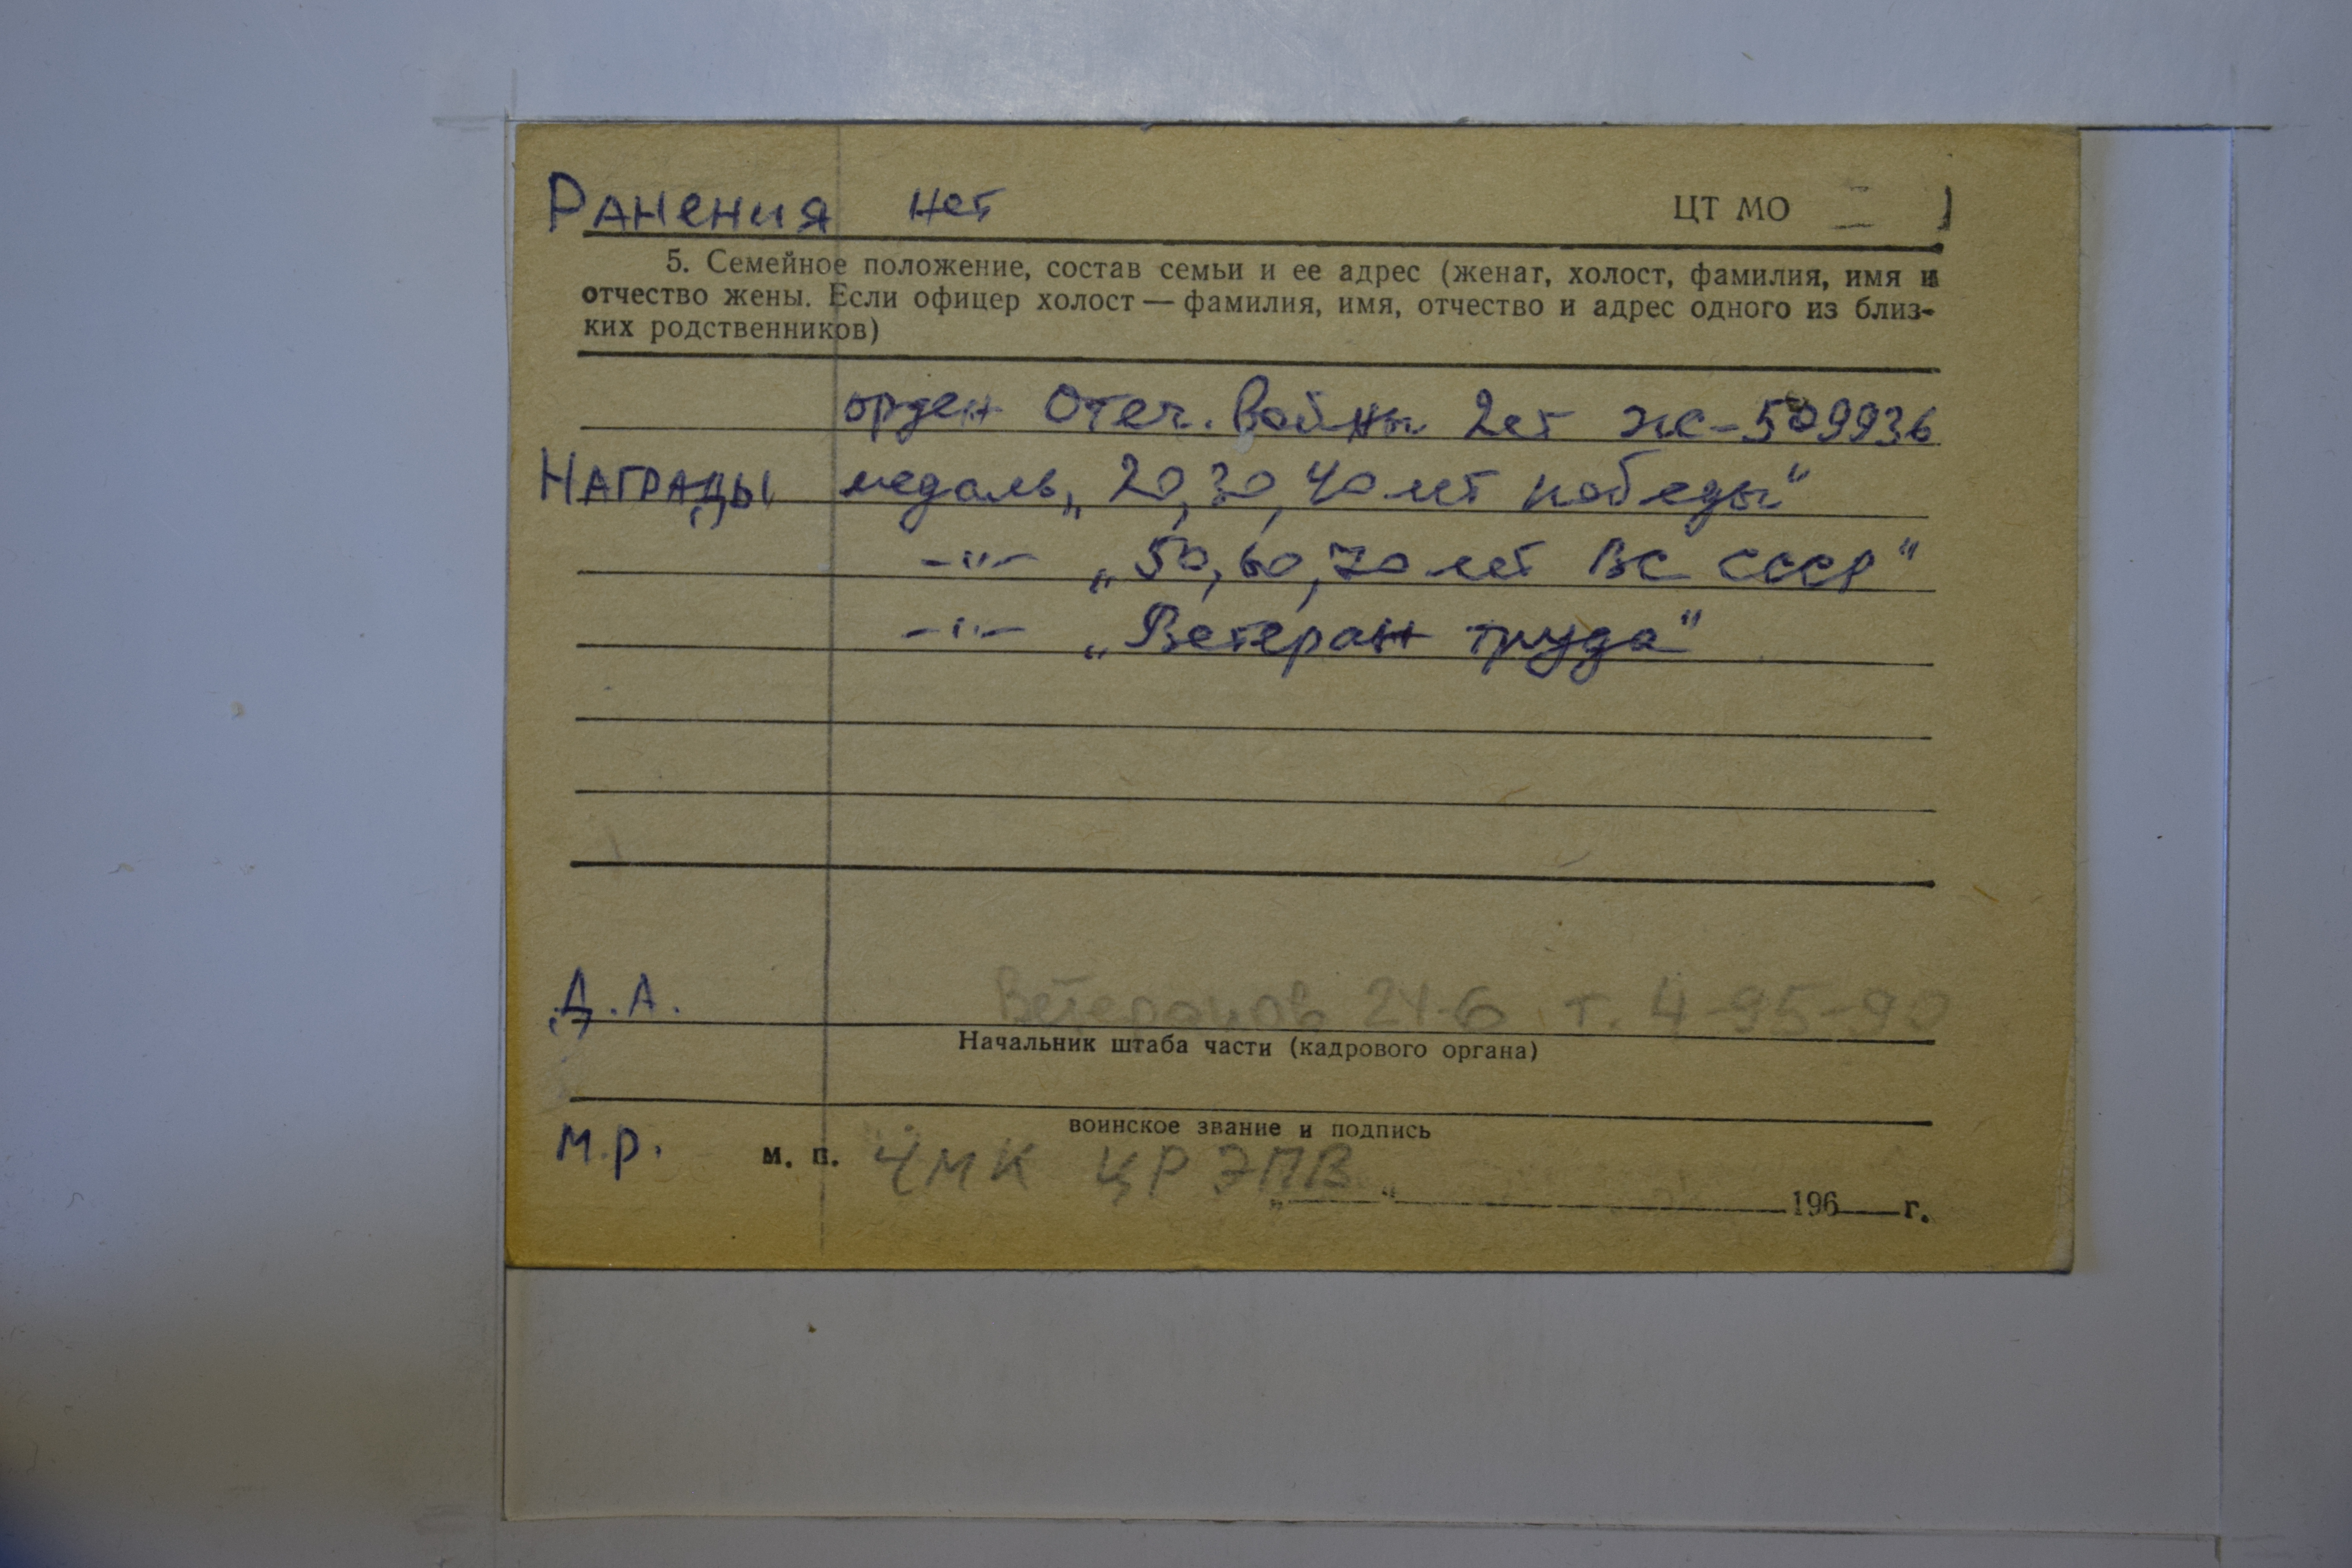 Ранения нет ЦТ МО
5. Семейное положение, состав семьи и ее адрес (женат, холост, фамилия, имя и
отчество жены. Если офицер холост — фамилия, имя, отчество и адрес одного из близ-
ких родственников)
орден Отеч. Войны 2ст ЖС-509936
Награды медаль „20,30,40 лет победы“
—"— „50,60,70 лет ВС СССР“
—"— „Ветеран труда“
Д.А. Ветеранов 24-6 т. 4-95-90
Начальник штаба части (кадрового органа)
воинское звание и подпись
М.Р. м. п. ЧМК ЦРЭПВ
„ “ 196 г.